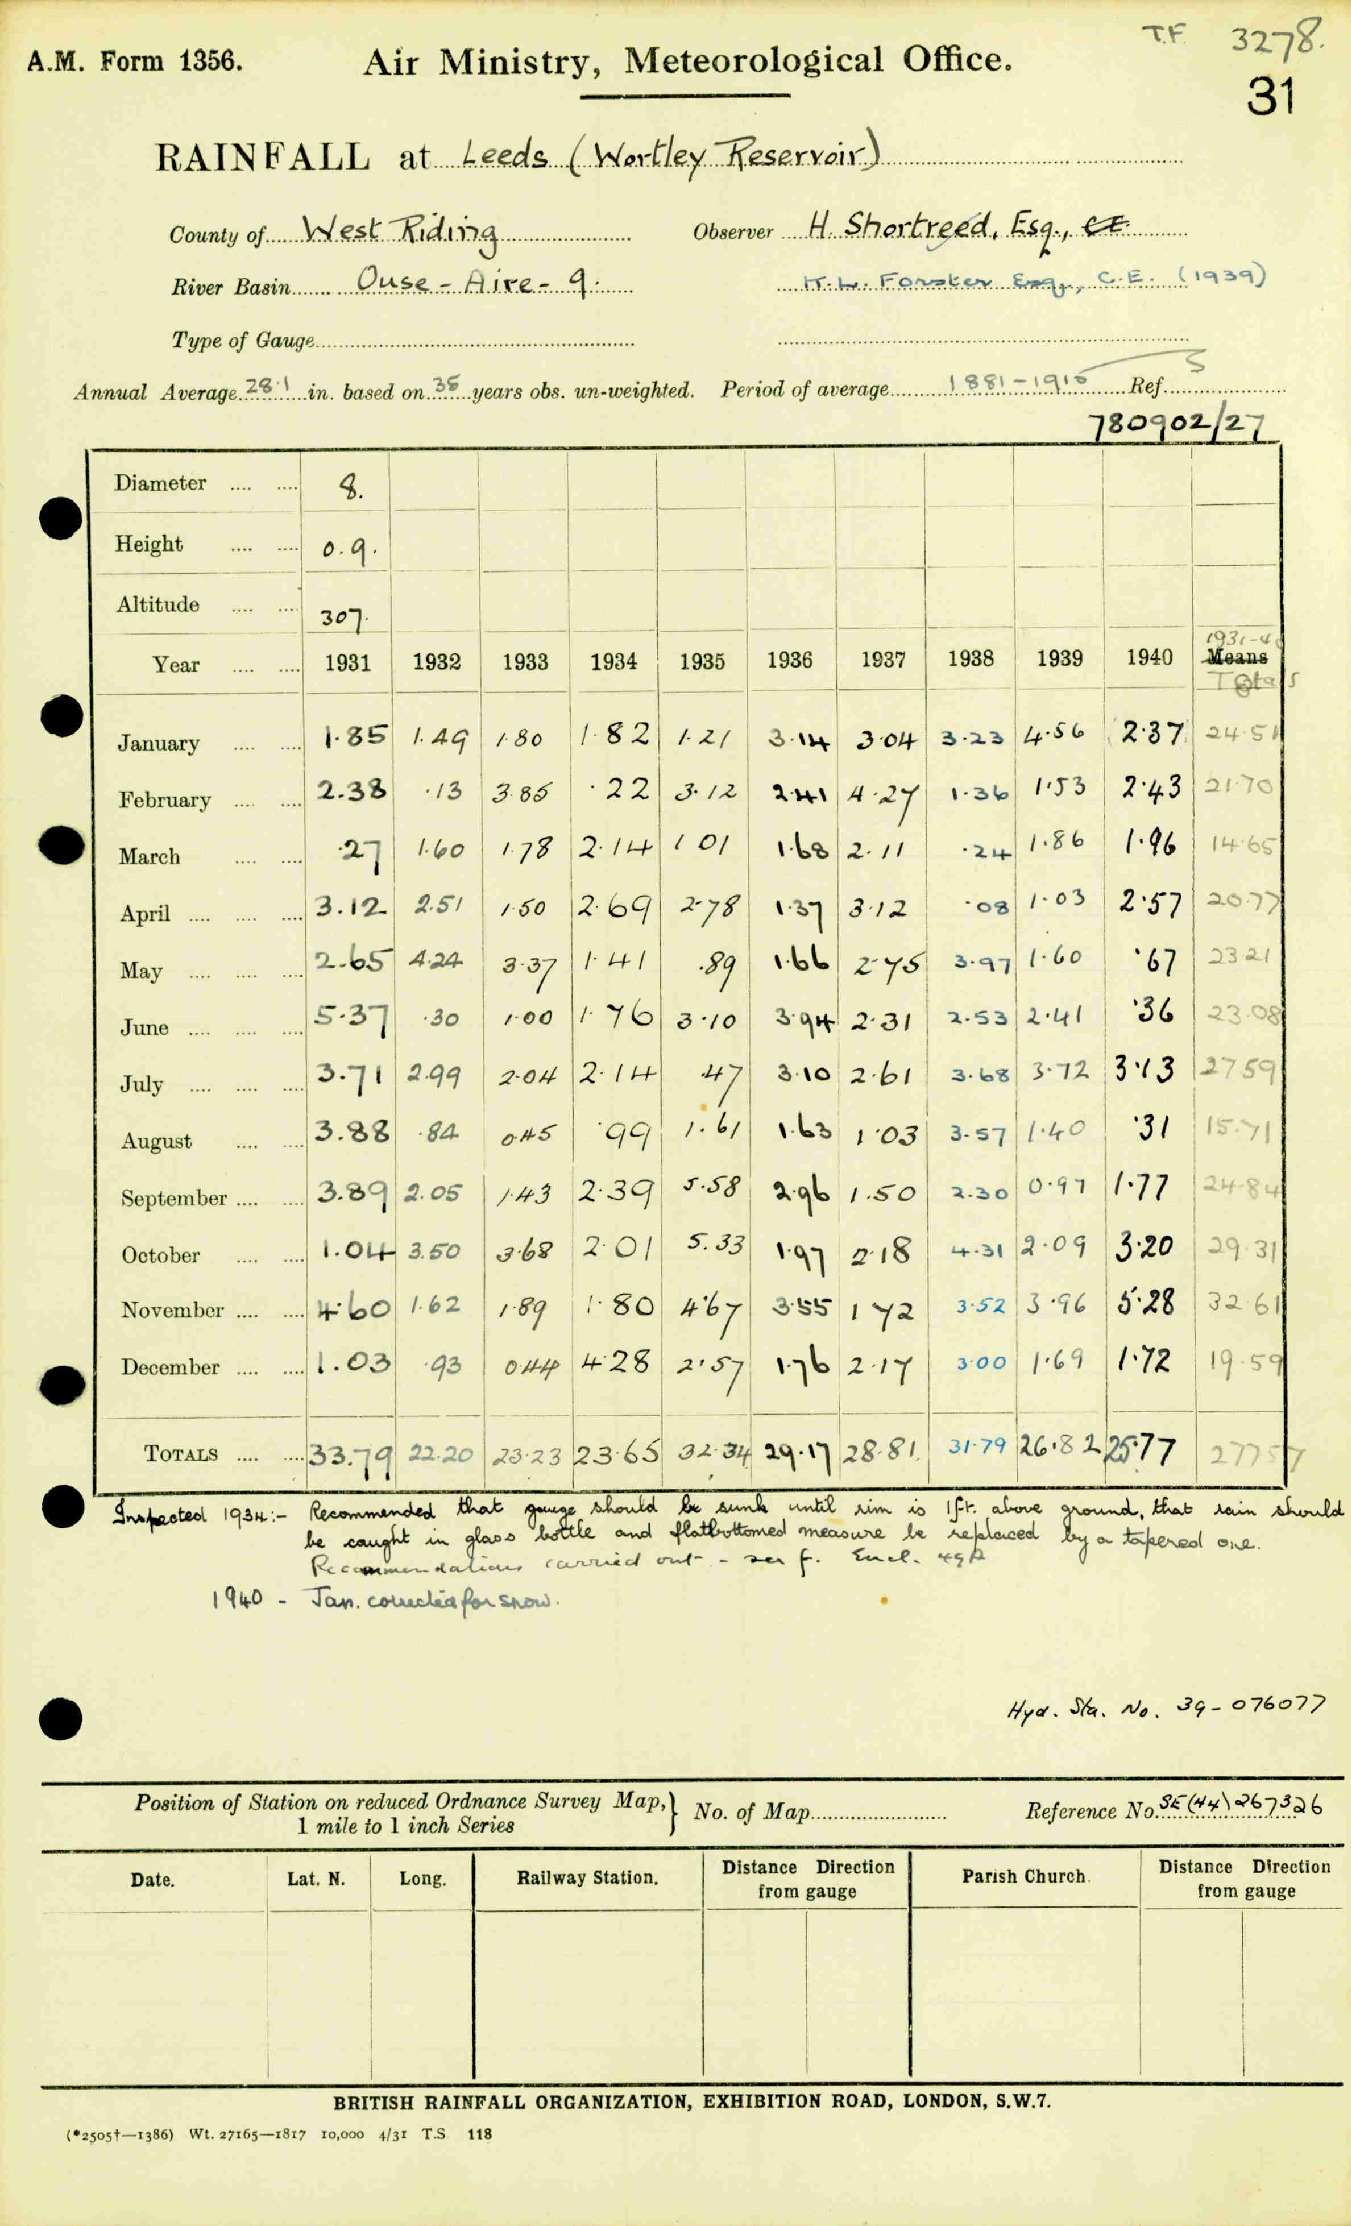 T.F. 3278.
A.M. Form 1356. Air Ministry, Meteorological Office.
31
RAINFALL at Leeds (Wortley Reservoir)
County of West Riding Observer H. Shortreed, Esq., C.E.
River Basin Ouse - Aire - 9. K.L. Forster Esq., C.E. (1939)
Type of Gauge
Annual Average 28.1 in. based on 35 years obs. un-weighted. Period of average 1881-1915 Ref. 5
780902/27
Diameter .... .... 8.
Height .... .... 0.9.
Altitude .... .... 307.
Year .... .... 1931 1932 1933 1934 1935 1936 1937 1938 1939 1940 1931-40 Means Totals
January .... .... 1.85 1.49 1.80 1.82 1.21 3.14 3.04 3.23 4.56 2.37 24.51
February .... .... 2.38 .13 3.85 .22 3.12 2.41 4.27 1.36 1.53 2.43 21.70
March .... .... .27 1.60 1.78 2.14 1.01 1.68 2.11 .24 1.86 1.96 14.65
April .... .... .... 3.12 2.51 1.50 2.69 2.78 1.37 3.12 .08 1.03 2.57 20.77
May .... .... .... 2.65 4.24 3.37 1.41 .89 1.66 2.75 3.97 1.60 .67 23.21
June .... .... .... 5.37 .30 1.00 1.76 3.10 3.94 2.31 2.53 2.41 .36 23.08
July .... .... .... 3.71 2.99 2.04 2.14 .47 3.10 2.61 3.68 3.72 3.13 27.59
August .... .... 3.88 .84 0.45 .99 1.61 1.63 1.03 3.57 1.40 .31 15.71
September .... .... 3.89 2.05 1.43 2.39 5.58 2.96 1.50 2.30 0.97 1.77 24.84
October .... .... 1.04 3.50 3.68 2.01 5.33 1.97 2.18 4.31 2.09 3.20 29.31
November .... .... 4.60 1.62 1.89 1.80 4.67 3.55 1.72 3.52 3.96 5.28 32.61
December .... .... 1.03 .93 0.44 4.28 2.57 1.76 2.17 3.00 1.69 1.72 19.59
TOTALS .... .... 33.79 22.20 23.23 23.65 32.34 29.17 28.81 31.79 26.82 25.77 277.57
Inspected 1934:- Recommended that gauge should be sunk until rim is 1ft. above ground, that rain should
be caught in glass bottle and flatbottomed measure be replaced by a tapered one.
Recommendations carried out - see f. Encl. 49A
1940 - Jan. corrected for snow.
Hyd. Sta. No. 39-076077
Position of Station on reduced Ordnance Survey Map, } No. of Map Reference No. SE(44)267326
1 mile to 1 inch Series
Date. Lat. N. Long. Railway Station. Distance Direction from gauge Parish Church. Distance Direction from gauge
BRITISH RAINFALL ORGANIZATION, EXHIBITION ROAD, LONDON, S.W.7.
(*2505†—1386) Wt. 27165—1817 10,000 4/31 T.S. 118